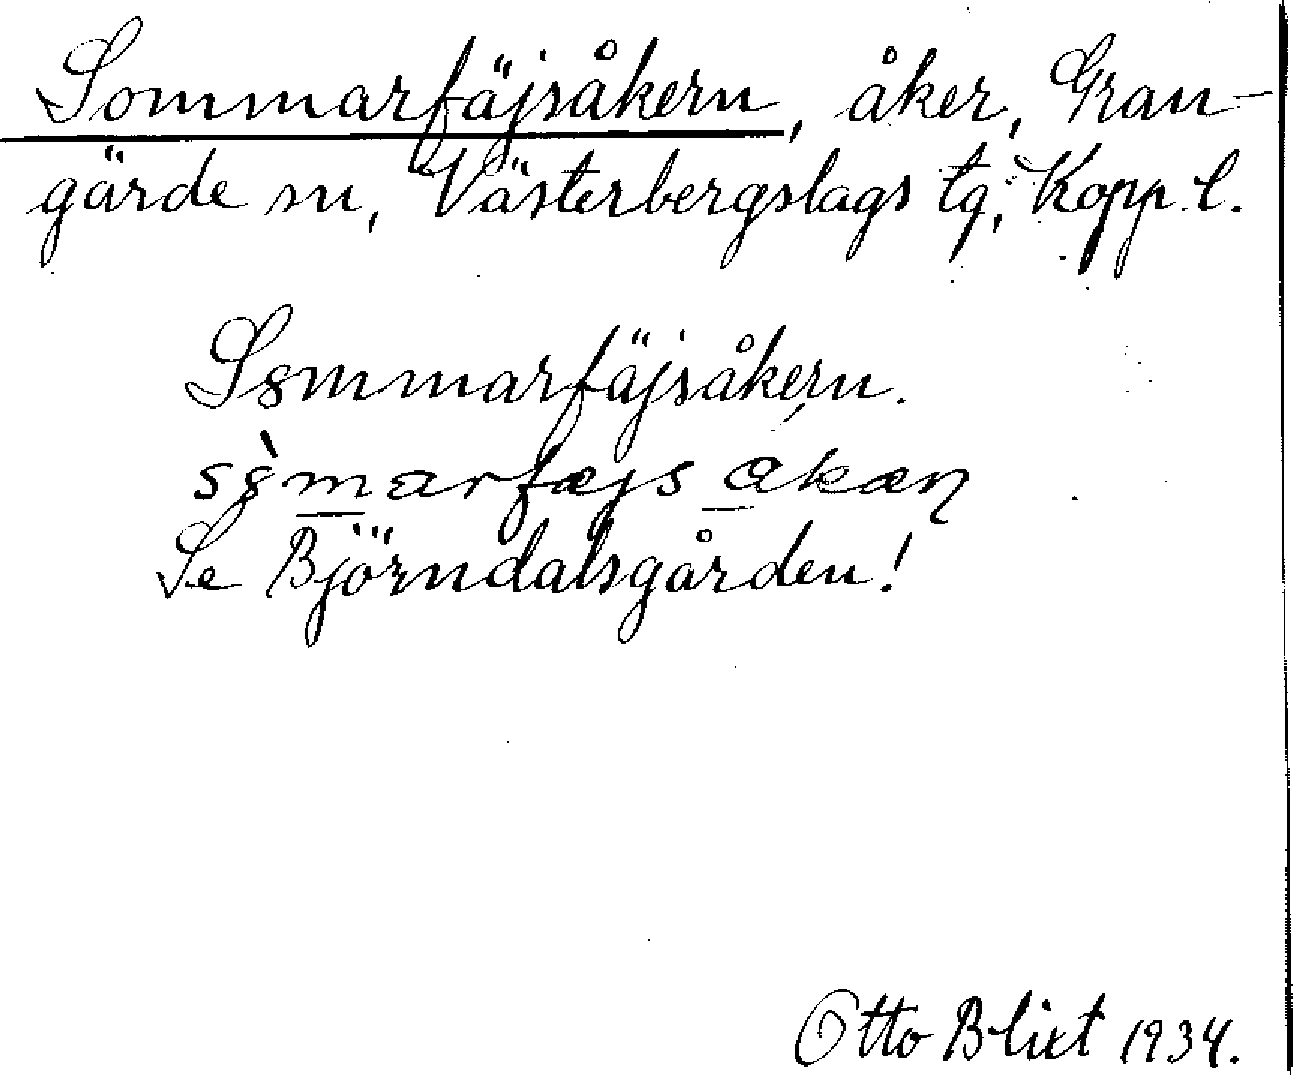 Sommarfäjsåkern, åker, Gran-
gärde sn, Västerbergslags tg, Kopp. l.
Sommarfäjsåkern.
Se Björndalsgården!
Otto Blixt 1934.